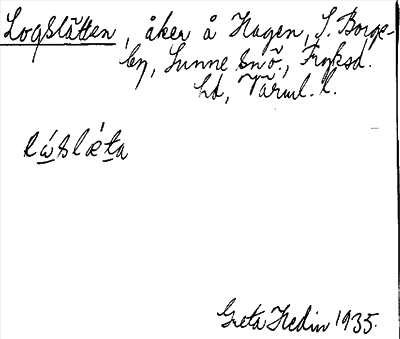 Logslätten, åker å Hagen, S. Borge-
by, Sunne snö., Fryksd.
hd, Värml. l.
lωslæta
Greta Hedin 1935.